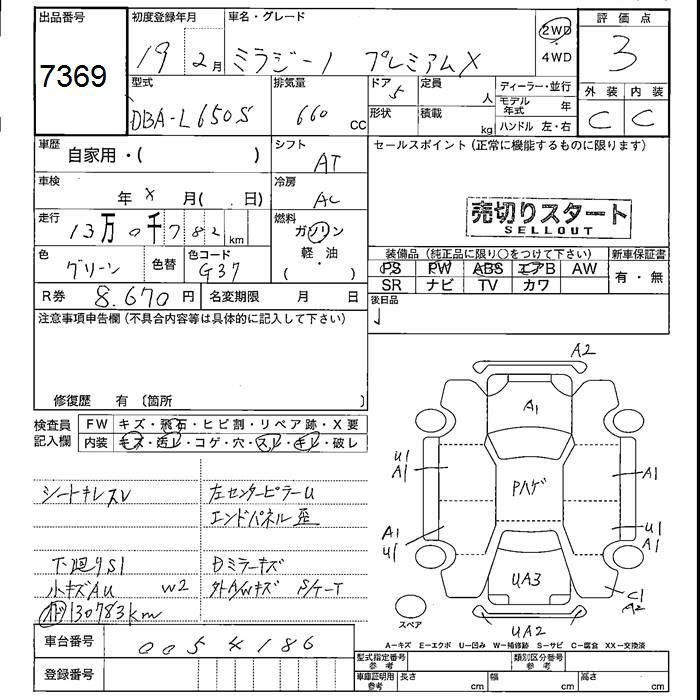 出品番号
7369
初度登録年月
19 年 2月
車名・グレード
ミラジーノ プレミアムX
2WD
4WD
評価点
3
外装 内装
C C
型式
DBA-L650S
排気量
660 CC
ドア
5
定員
人
形状
積載
kg
ディーラー・並行
モデル年式 年
ハンドル 左・右
車歴
自家用・( )
シフト
AT
セールスポイント(正常に機能するものに限ります)
車検
年 X 月( . 日)
冷房
AC
売切りスタート
SELLOUT
走行
13万0千782km
燃料
ガソリン
・
軽・油
( )
色
グリーン
色替
色コード
G37
装備品(純正品に限り○をつけて下さい)
PS PW ABS エアB AW
SR ナビ TV カワ
新車保証書
有・無
R券 8.670円
名変期限 月 日
後日品
注意事項申告欄(不具合内容等は具体的に記入して下さい)
修復歴 有(箇所
検査員記入欄
FW キズ・飛石・ヒビ割・リペア跡・X要
内装 キズ・汚レ・コゲ・穴・スレ・キレ・破レ
シートキレスレ
左センターピラーU
エンドパネル歪
下廻りS1
Dミラーキズ
小キズAU W2
外AWキズ
メーター130783km
A2
A1
U1
A1
Pハゲ
A1
A1
U1
U1
A1
UA3
C1
A2
UA2
スペア
A-キズ E-エクボ U-凹み W-補修跡 S-サビ C-腐食 XX-交換済
車台番号 0054186
登録番号
型式指定番号参考
類別区分番号参考
車庫証明用参考
長さ cm
幅 cm
高さ cm